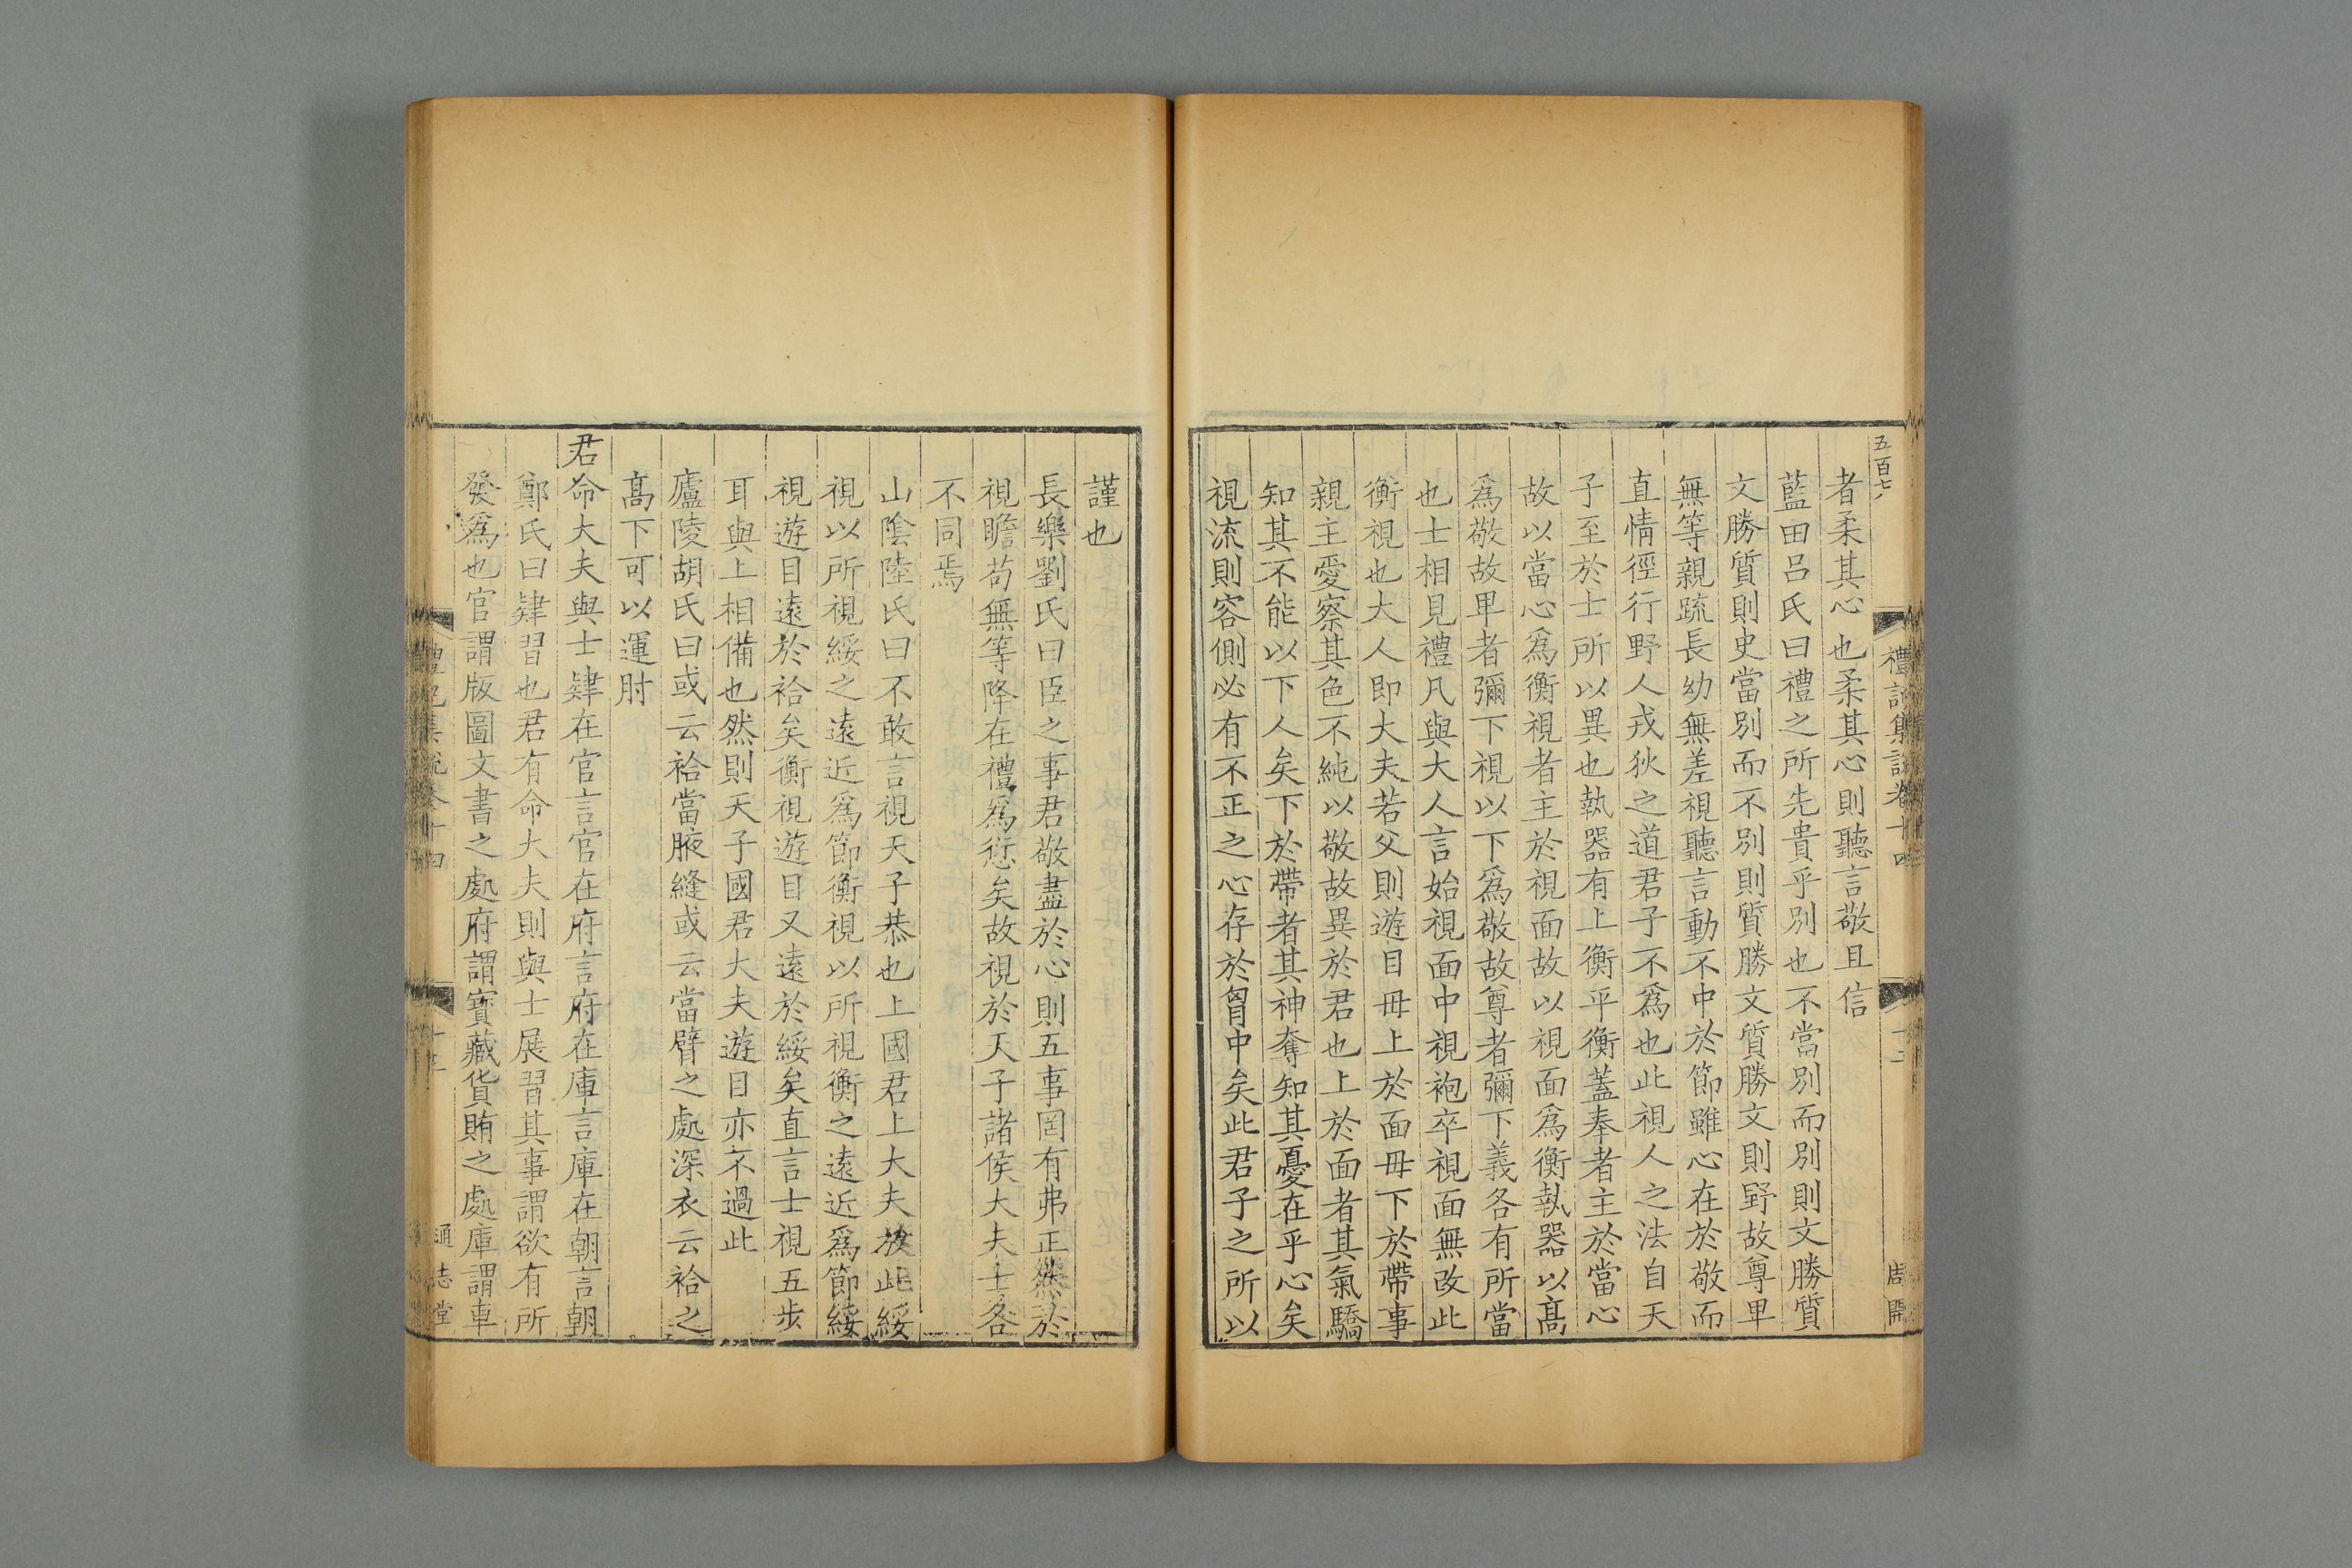 五百七
禮記集說卷十四
十二
唐開
者柔其心也柔其心則聽言敬且信
藍田呂氏曰禮之所先貴乎別也不當別而別則文勝質
文勝質則史當別而不別則質勝文質勝文則野故尊卑
無等親疏長幼無差視聽言動不中於節雖心在於敬而
直情徑行野人戎狄之道君子不爲也此視人之法自天
子至於士所以異也執器有上衡平衡蓋奉者主於當心
故以當心爲衡視者主於視面故以視面爲衡執器以髙
爲敬故卑者彌下視以下爲敬故尊者彌下義各有所當
也士相見禮凡與大人言始視面中視袍卒視面無改此
衡視也大人即大夫若父則遊目毋上於面毋下於帶事
親主愛察其色不純以敬故異於君也上於面者其氣驕
知其不能以下人矣下於帶者其神奪知其憂在乎心矣
視流則容側必有不正之心存於胷中矣此君子之所以
謹也
長樂劉氏曰臣之事君敬盡於心則五事罔有弗正然於
視瞻苟無等降在禮爲愆矣故視於天子諸侯大夫士各
不同焉
山陰陸氏曰不敢言視天子恭也上國君上大夫放此綏
視以所視綏之遠近爲節衡視以所視衡之遠近爲節綏
視遊目遠於袷矣衡視遊目又遠於綏矣直言士視五步
耳與上相備也然則天子國君大夫遊目亦不過此
廬陵胡氏曰或云袷當腋縫或云當臂之處深衣云袷之
髙下可以運肘
君命大夫與士肄在官言官在府言府在庫言庫在朝言朝
鄭氏曰肄習也君有命大夫則與士展習其事謂欲有所
發爲也官謂版圖文書之處府謂寶藏貨賄之處庫謂車
禮記集說卷十四
通志堂